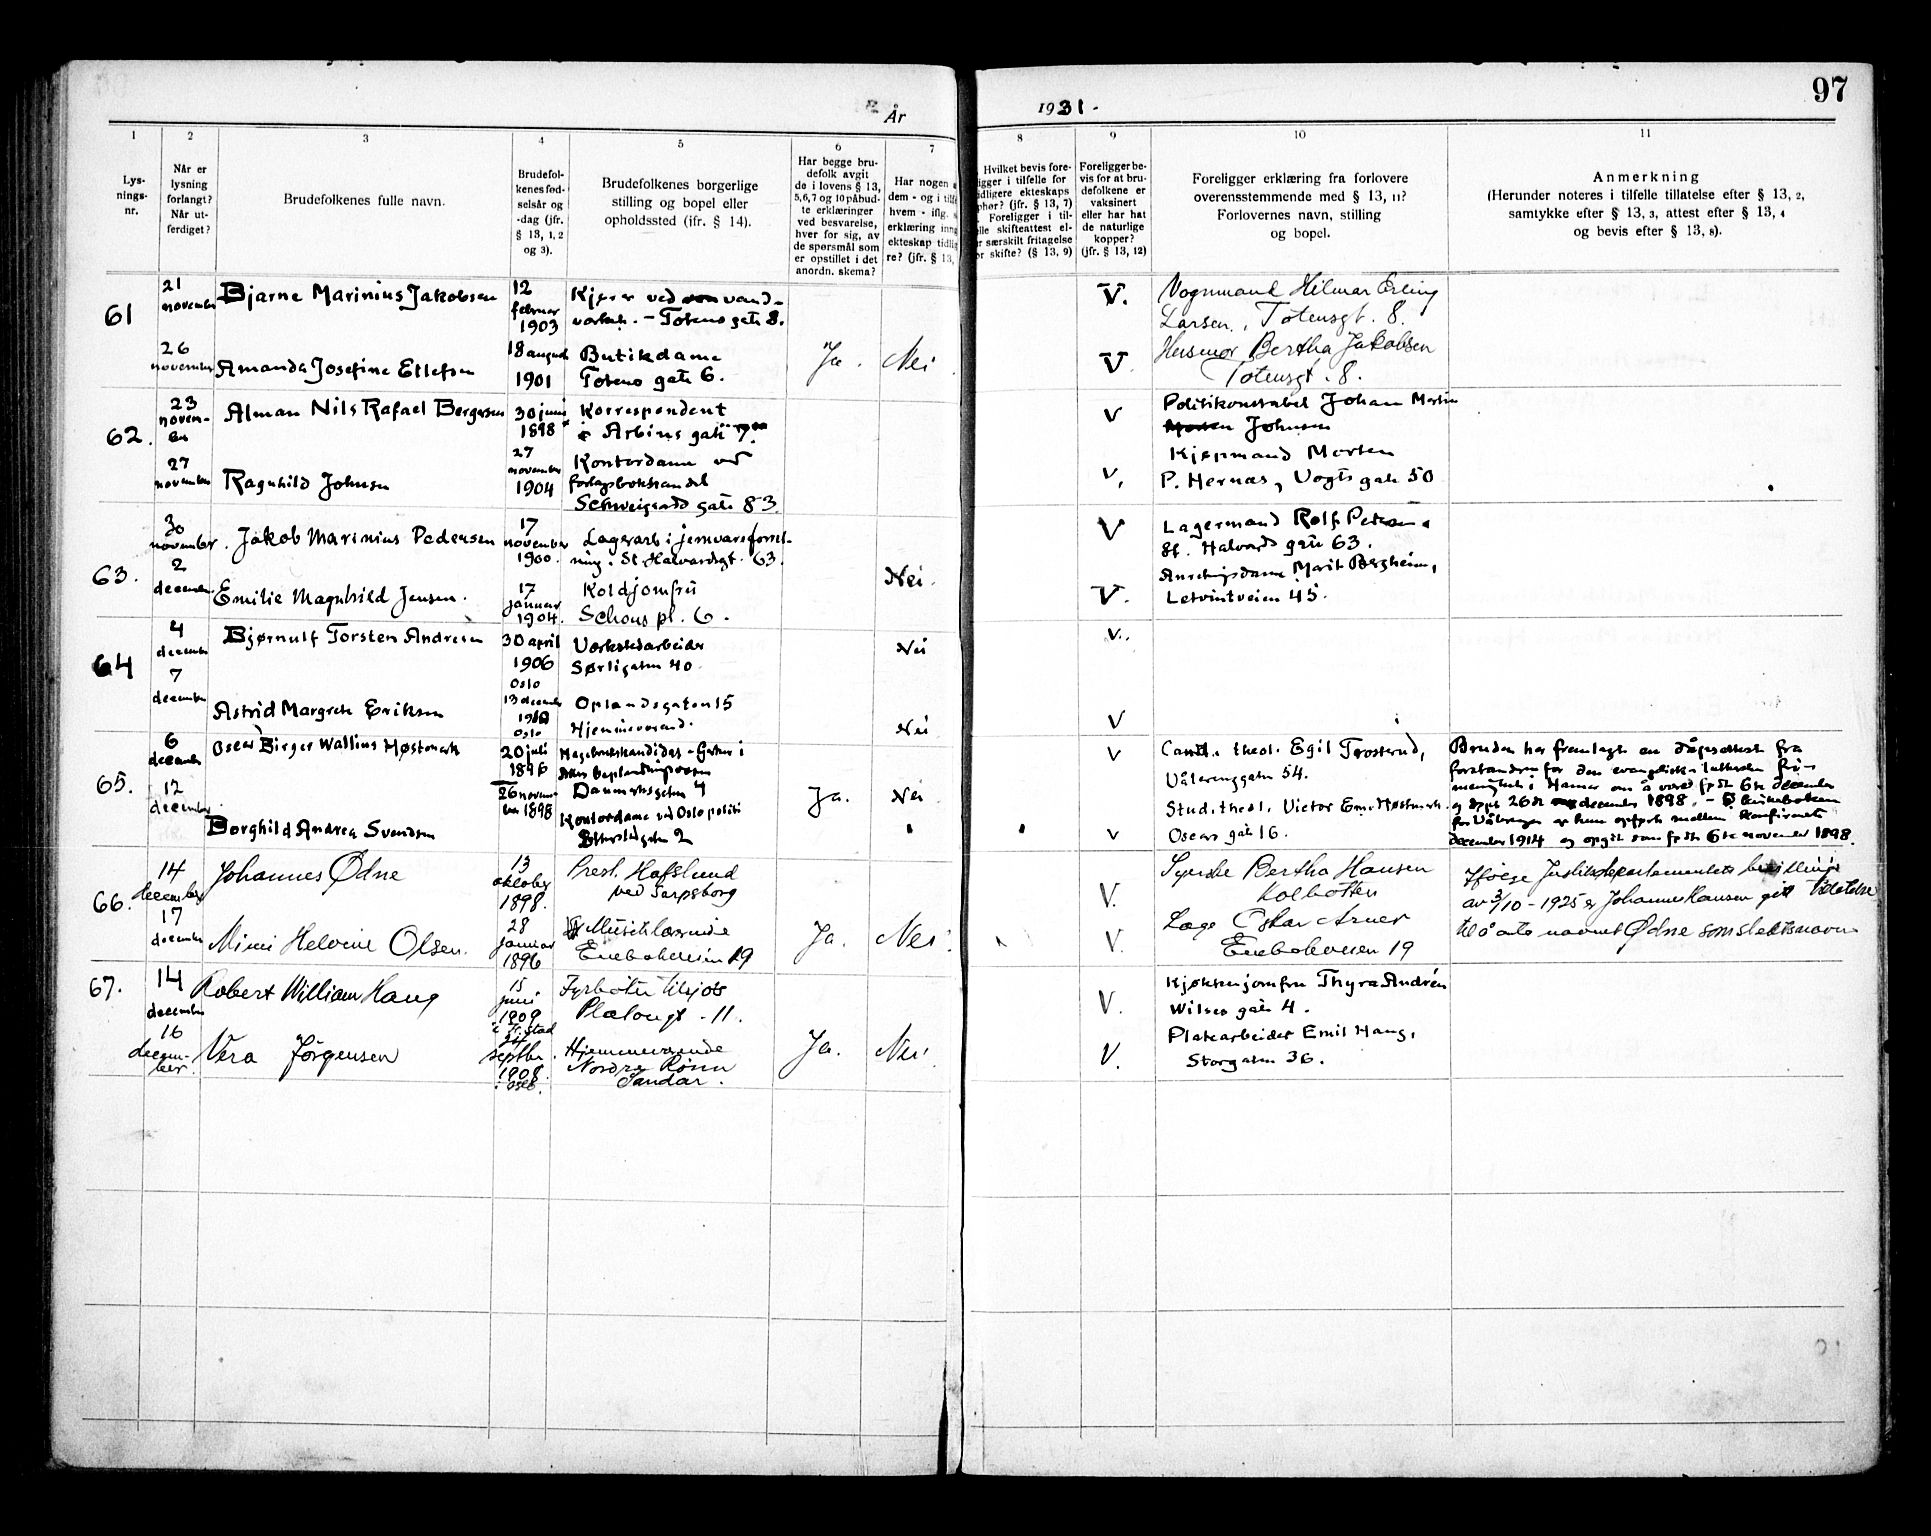 År
1931.
97
1
2
3
4
5
6
7
8
9
10
11
Lys-
nings-
nr.
Når er
lysning
forlangt?
Når ut-
ferdiget?
Brudefolkenes fulle navn.
Brudefol-
kenes fød-
selsår og
-dag (jfr.
§ 13, 1, 2
og 3).
Brudefolkenes borgerlige
stilling og bopel eller
opholdssted (ifr. § 14).
Har begge bru-
defolk avgit
de i lovens § 13,
5, 6, 7 og 10 påbud-
te erklæringer
ved besvarelse,
hver for sig, av
de spørsmål som
er opstillet i det
anordn. skema?
Har nogen
dem - og i tilf
hvem - iflg.
erklæring inng
ekteskap tidlig
re? (jfr. § 13,
Hvilket bevis fore-
igger i tilfelle for
idligere ekteskaps
phør? (jfr. § 13, 7)
Foreligger i til-
lle skifteattest el-
r særskilt fritagelse
or skifte? (§ 13, 9)
Foreligger be-
vis for at bru-
defolkene er
vaksinert
eller har hat
de naturlige
kopper?
(jfr. § 13, 12)
Foreligger erklæring fra forlovere
overensstemmende med § 13, 11?
Forlovernes navn, stilling
og bopel.
Anmerkning
(Herunder noteres i tilfelle tillatelse efter § 13, 2,
samtykke efter § 13, 3, attest efter § 13, 4
og bevis efter § 13, 8).
61
21
november
Bjarne Marinius Jakobsen
12
februar
1903
Kjører ved vand-
- Totens gate 8.
V.
Vognmand Hilmar Erling
Larsen, Totensgt. 8.
26
november
Amanda Josefine Ellefsen
18 august
1901
Butikdame
Totens gate 6.
Ja.
Nei
V
Husmor Bertha Jakobsen
Totensgt. 8.
62.
23
novem-
ber
Alman Nils Rafael Bergersen
30 juni
1898
Korrespondent
Arbins gate 7.
V
Politikonstabel Johan Martin
Johnsen
27
november
Ragnhild Johnsen
27
november
1904
Kontordame ved
forlagsbokhandel
Schweigaards gate 83.
V.
Kjøpmand Morten
P. Hernæs, Vogts gate 50
63.
30
november.
Jakob Marinius Pedersen
17
november
1900.
Lagerarb. i jernvareforret-
ning. St Halvardsgt. 63.
V
Lagermand Rolf Petersen
St. Halvards gate 63.
2
december
Emilie Magnhild Jensen.
17
januar
1904.
Koldjomfru
Schous pl. 6.
Nei.
V.
Marit Bergheim,
Letvintveien 45.
64
4
december
Bjørnulf Torsten Andresen
30 april
1906
Oslo
Verkstedarbeider
Sørligaten 40.
Nei
V.
7
december
Astrid Margrete Eriksen
13 december
1910
Oslo
Oplandsgaten 15
Hjemmeværend.
Nei
V
65.
6
december
Oscar Birger Wallius Høstmark
20 juli
1896
Havebrukskandidat - Gartner i
V
Cand. theol. Egil Trosterud,
Vålerenggaten 54.
12
december
Borghild Andrea Svendsen
26 novem-
ber 1898
Danmarksgaten 4
Kontordame ved Oslo politi
2
Ja.
Nei
V
Stud. theol. Victor Em. Høstmark.
Oscars gate 16.
Bruden har fremlagt en dåpsattest fra
forstanderen for den evangelisk-lutherske fri-
menighet i Hamar om å være født 6te december
og døpt 26de december 1898. - I kirkeboken
for Vålerengen er hun opført mellem konfirmerte
december 1914 og opgit som født 6te november 1898.
66.
14
december
Johannes Ødne
13
oktober
1898.
Prest. Hafslund
ved Sarpsborg
V.
Syerske Bertha Hansen
Kolbotten
Ifølge Justitsdepartementets bevilling
av 3/10 - 1925 er Johannes Hansen gitt tillatelse
til å anta navnet Ødne som slektsnavn
17
december
Mimi Helvine Olsen.
28
januar
1896
Musiklærerinde
Enebakveien 19
Ja.
Nei.
V.
Læge Oskar Arner
Enebakveien 19
67.
14
december
Robert William Haug
15
juni
1909
i Fr.stad
Fyrbøter
Platougt. 11.
V.
Kjøkkenjomfru Thyra Andrén
Wilses gate 4.
16
decem-
ber.
Vera Jörgensen
24
septbr.
1908.
Oslo.
Hjemmeværende
Nordre Rönn
Sandar.
Ja.
Nei.
V.
Platearbeider Emil Haug,
Storgaten 36.